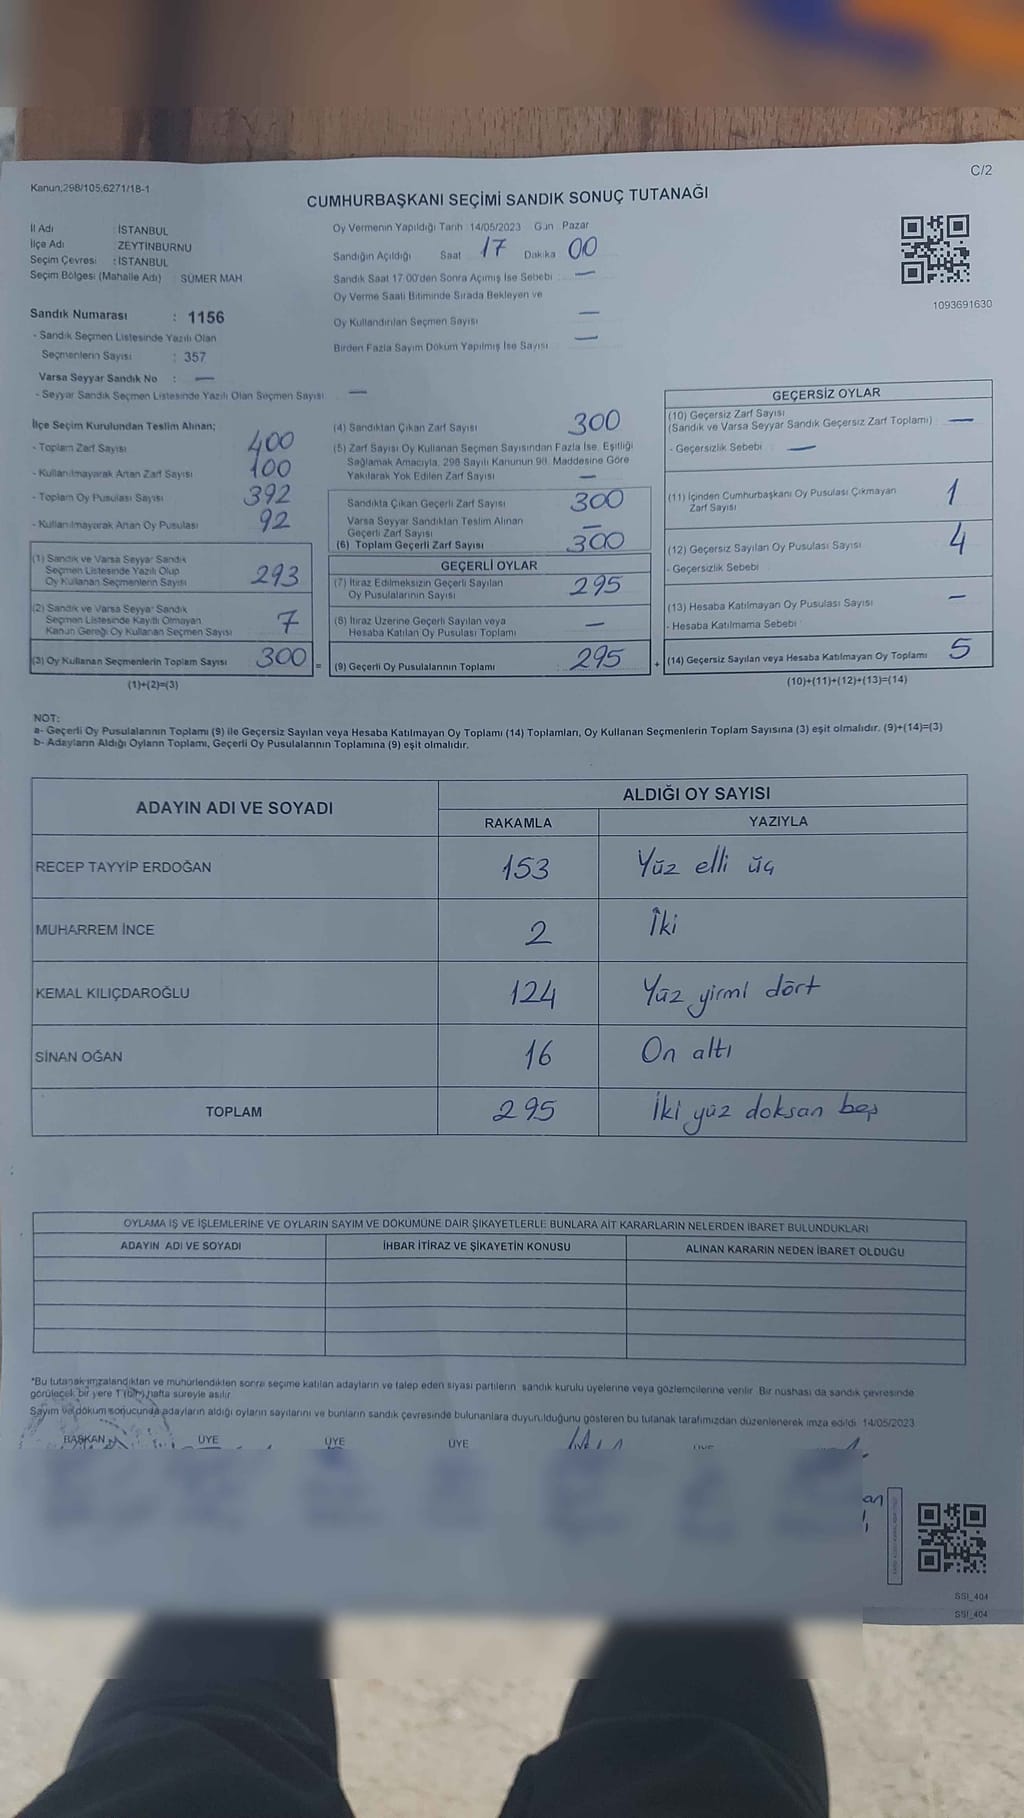 C/2
Kanun;298/105;6271/18-1
CUMHURBAŞKANI SEÇİMİ SANDIK SONUÇ TUTANAĞI
İl Adı : İSTANBUL
İlçe Adı : ZEYTİNBURNU
Seçim Çevresi : İSTANBUL
Seçim Bölgesi (Mahalle Adı) SÜMER MAH.
Sandık Numarası : 1156
- Sandık Seçmen Listesinde Yazılı Olan
Seçmenlerin Sayısı : 357
Varsa Seyyar Sandık No : —
- Seyyar Sandık Seçmen Listesinde Yazılı Olan Seçmen Sayısı —
Oy Vermenin Yapıldığı Tarih : 14/05/2023 Gün : Pazar
Sandığın Açıldığı Saat 17 Dakika 00
Sandık Saat 17:00'den Sonra Açılmış İse Sebebi : —
Oy Verme Saati Bitiminde Sırada Bekleyen ve
Oy Kullandırılan Seçmen Sayısı —
Birden Fazla Sayım Döküm Yapılmış İse Sayısı —
1093691630
İlçe Seçim Kurulundan Teslim Alınan;
- Toplam Zarf Sayısı 400
- Kullanılmayarak Artan Zarf Sayısı 100
- Toplam Oy Pusulası Sayısı 392
- Kullanılmayarak Artan Oy Pusulası 92
(1) Sandık ve Varsa Seyyar Sandık
Seçmen Listesinde Yazılı Olup
Oy Kullanan Seçmenlerin Sayısı 293
(2) Sandık ve Varsa Seyyar Sandık
Seçmen Listesinde Kayıtlı Olmayan
Kanun Gereği Oy Kullanan Seçmen Sayısı 7
(3) Oy Kullanan Seçmenlerin Toplam Sayısı 300 =
(1)+(2)=(3)
(4) Sandıktan Çıkan Zarf Sayısı 300
(5) Zarf Sayısı Oy Kullanan Seçmen Sayısından Fazla İse, Eşitliği
Sağlamak Amacıyla, 298 Sayılı Kanunun 98. Maddesine Göre
Yakılarak Yok Edilen Zarf Sayısı —
Sandıkta Çıkan Geçerli Zarf Sayısı 300
Varsa Seyyar Sandıktan Teslim Alınan
Geçerli Zarf Sayısı —
(6) Toplam Geçerli Zarf Sayısı 300
GEÇERLİ OYLAR
(7) İtiraz Edilmeksizin Geçerli Sayılan
Oy Pusulalarının Sayısı 295
(8) İtiraz Üzerine Geçerli Sayılan veya
Hesaba Katılan Oy Pusulası Toplamı —
(9) Geçerli Oy Pusulalarının Toplamı : 295 +
GEÇERSİZ OYLAR
(10) Geçersiz Zarf Sayısı
(Sandık ve Varsa Seyyar Sandık Geçersiz Zarf Toplamı) —
- Geçersizlik Sebebi : —
(11) İçinden Cumhurbaşkanı Oy Pusulası Çıkmayan
Zarf Sayısı 1
(12) Geçersiz Sayılan Oy Pusulası Sayısı 4
- Geçersizlik Sebebi :
(13) Hesaba Katılmayan Oy Pusulası Sayısı —
- Hesaba Katılmama Sebebi :
(14) Geçersiz Sayılan veya Hesaba Katılmayan Oy Toplamı 5
(10)+(11)+(12)+(13)=(14)
NOT:
a- Geçerli Oy Pusulalarının Toplamı (9) ile Geçersiz Sayılan veya Hesaba Katılmayan Oy Toplamı (14) Toplamları, Oy Kullanan Seçmenlerin Toplam Sayısına (3) eşit olmalıdır. (9)+(14)=(3)
b- Adayların Aldığı Oyların Toplamı, Geçerli Oy Pusulalarının Toplamına (9) eşit olmalıdır.
ADAYIN ADI VE SOYADI ALDIĞI OY SAYISI
RAKAMLA YAZIYLA
RECEP TAYYİP ERDOĞAN 153 Yüz elli üç
MUHARREM İNCE 2 İki
KEMAL KILIÇDAROĞLU 124 Yüz yirmi dört
SİNAN OĞAN 16 On altı
TOPLAM 295 İki yüz doksan beş
OYLAMA İŞ VE İŞLEMLERİNE VE OYLARIN SAYIM VE DÖKÜMÜNE DAİR ŞİKAYETLERLE BUNLARA AİT KARARLARIN NELERDEN İBARET BULUNDUKLARI
ADAYIN ADI VE SOYADI İHBAR İTİRAZ VE ŞİKAYETİN KONUSU ALINAN KARARIN NEDEN İBARET OLDUĞU
*Bu tutanak imzalandıktan ve mühürlendikten sonra seçime katılan adayların ve talep eden siyasi partilerin sandık kurulu üyelerine veya gözlemcilerine verilir. Bir nüshası da sandık çevresinde
görülecek bir yere 1 (bir) hafta süreyle asılır.
Sayım ve döküm sonucunda adayların aldığı oyların sayılarını ve bunların sandık çevresinde bulunanlara duyurulduğunu gösteren bu tutanak tarafımızdan düzenlenerek imza edildi. 14/05/2023
BAŞKAN ÜYE ÜYE ÜYE
SSİ_404
SSİ_404